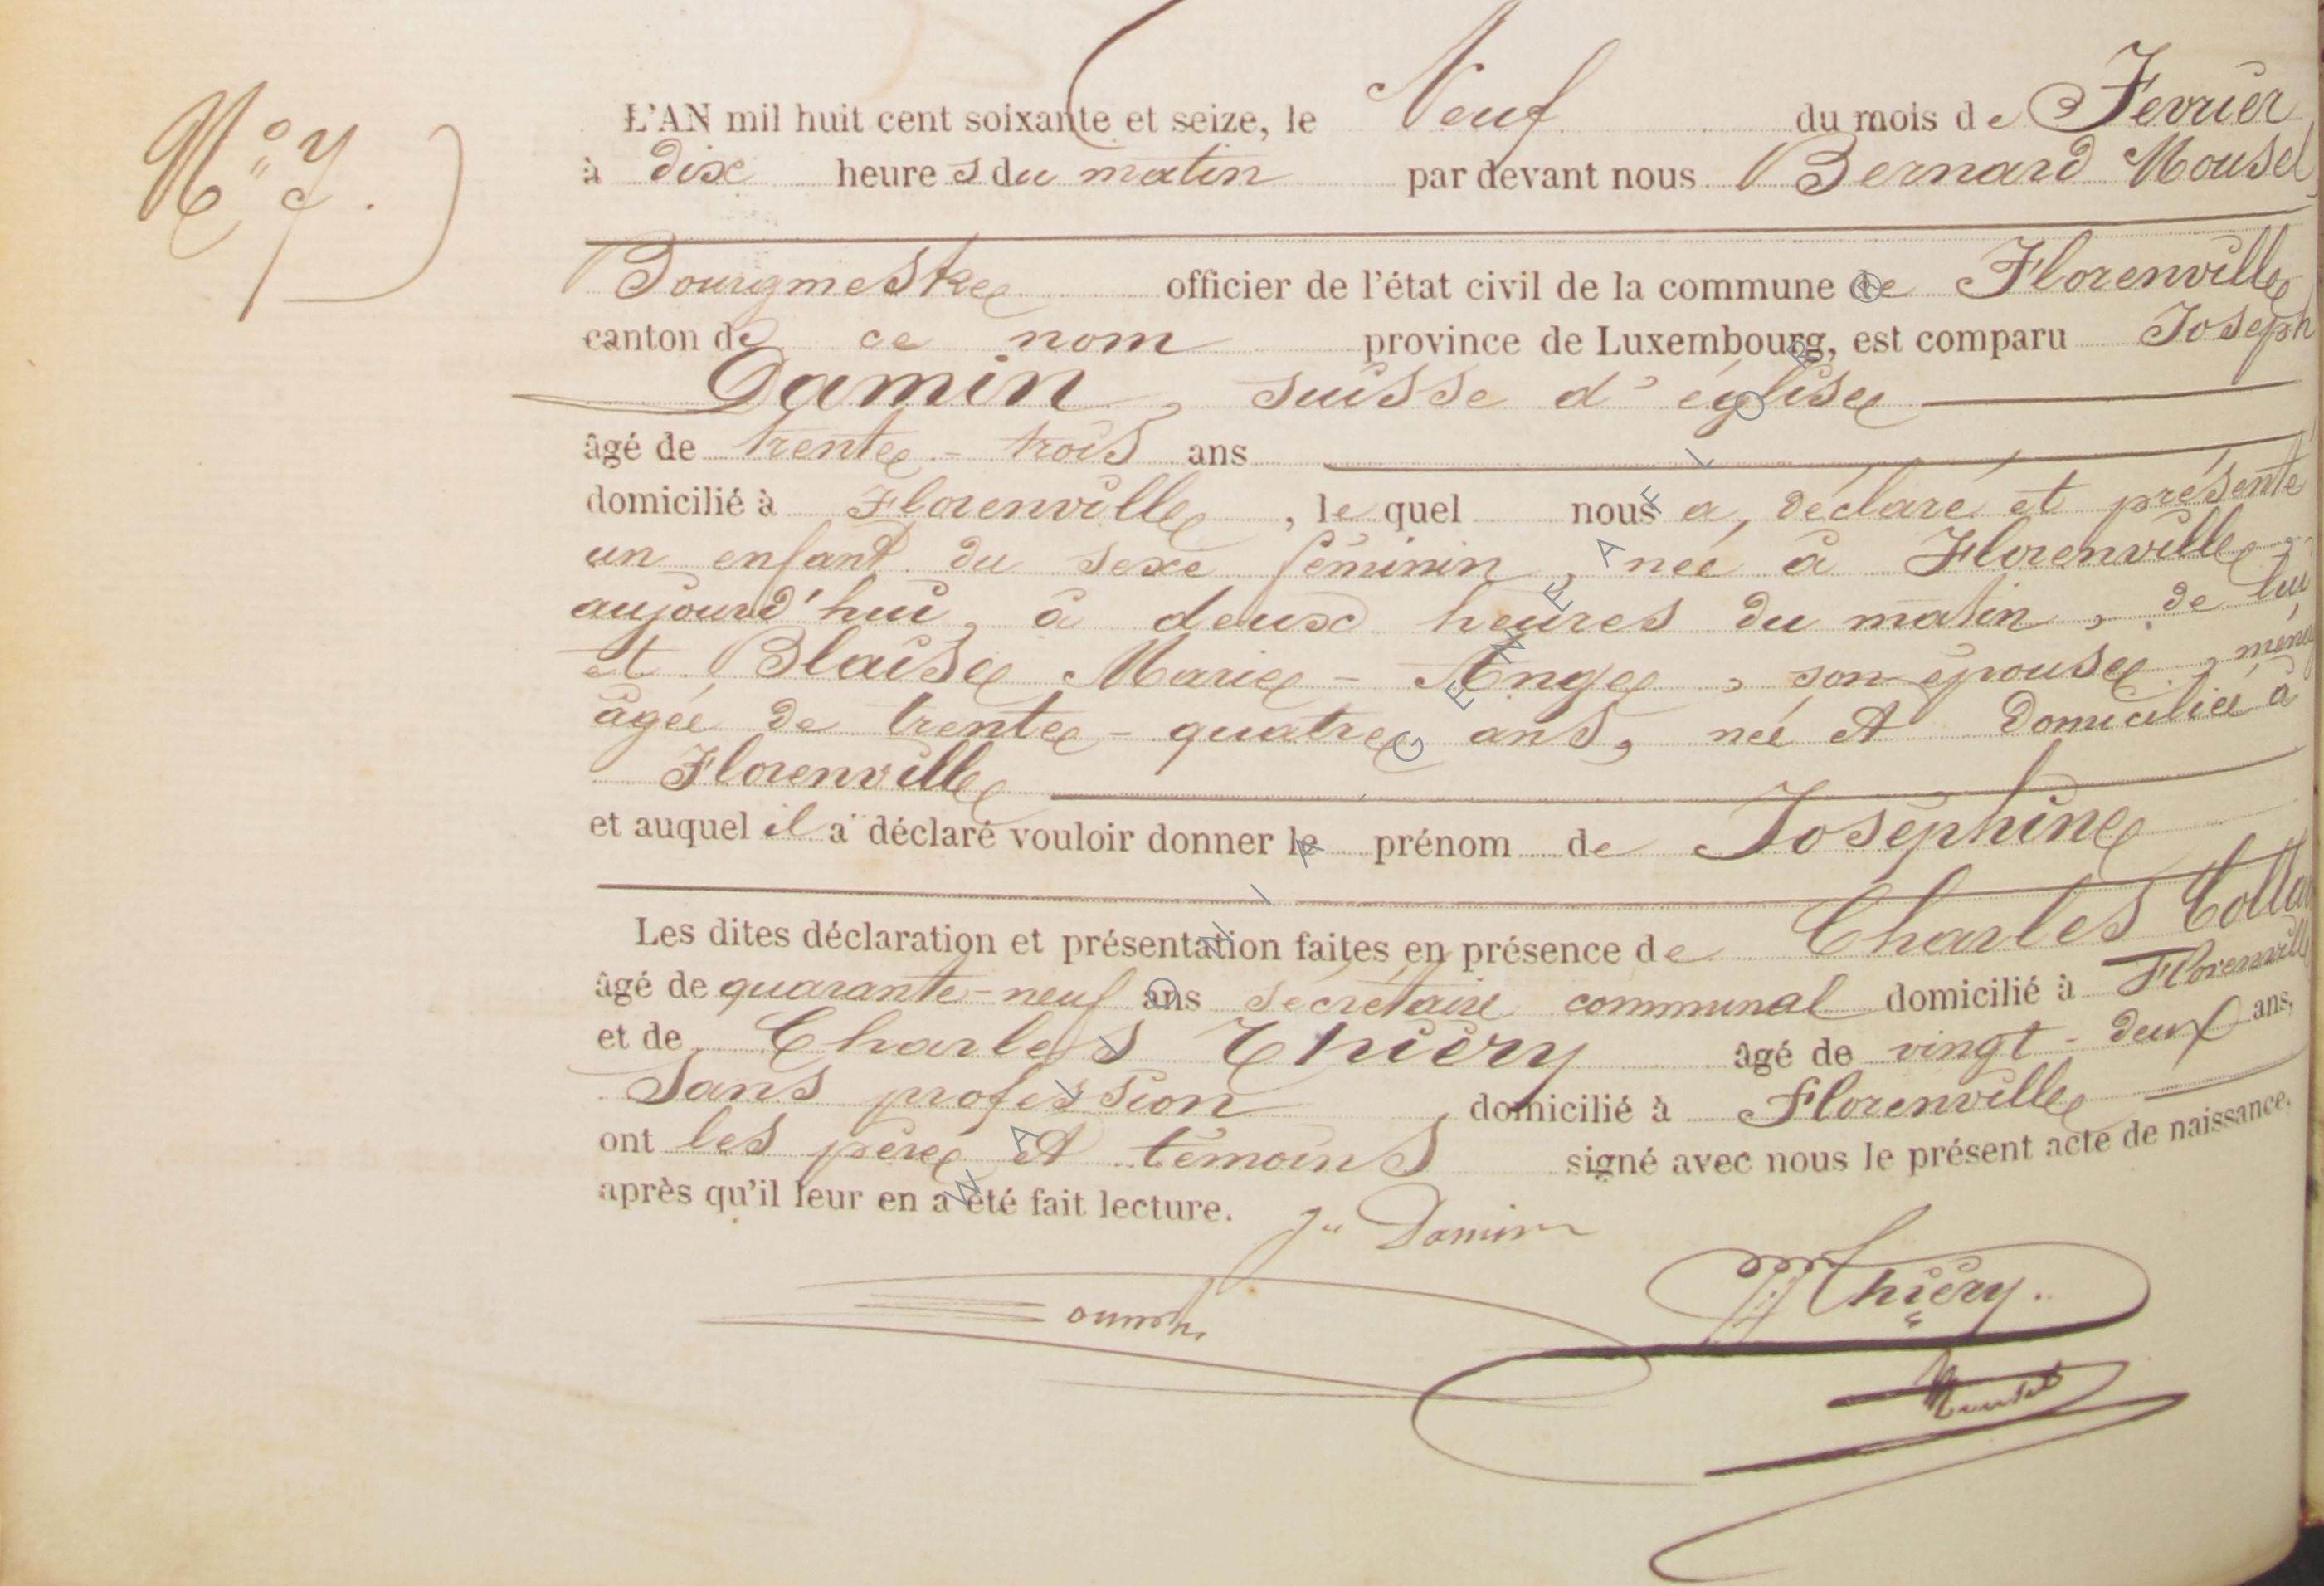 N° 7.
L'AN mil huit cent soixante et seize, le Neuf du mois de Fevrier
à dix heures du matin par devant nous Bernard Mousel,
Bourgmestre officier de l'état civil de la commune de Florenville
canton de ce nom province de Luxembourg, est comparu Joseph
Damin, suisse d'église
âgé de trente-trois ans
domicilié à Florenville, lequel nous a, déclaré et présenté
un enfant du sexe féminin, née à Florenville,
aujourd'hui, à deux heures du matin, de lui
et Blaise Marie-Ange, son épouse,
âgée de trente-quatre ans, née et domiciliée à
Florenville
et auquel il a déclaré vouloir donner le prénom de Joséphine
Les dites déclaration et présentation faites en présence de Charles
âgé de quarante-neuf ans secrétaire communal domicilié à Florenville
et de Charles Thiéry âgé de vingt-deux ans,
Sans profession, domicilié à Florenville
ont les père et témoins signé avec nous le présent acte de naissance,
après qu'il leur en a été fait lecture.
Jh Damin
Thiéry.
Mousel
WALONIRGENEAFLOR